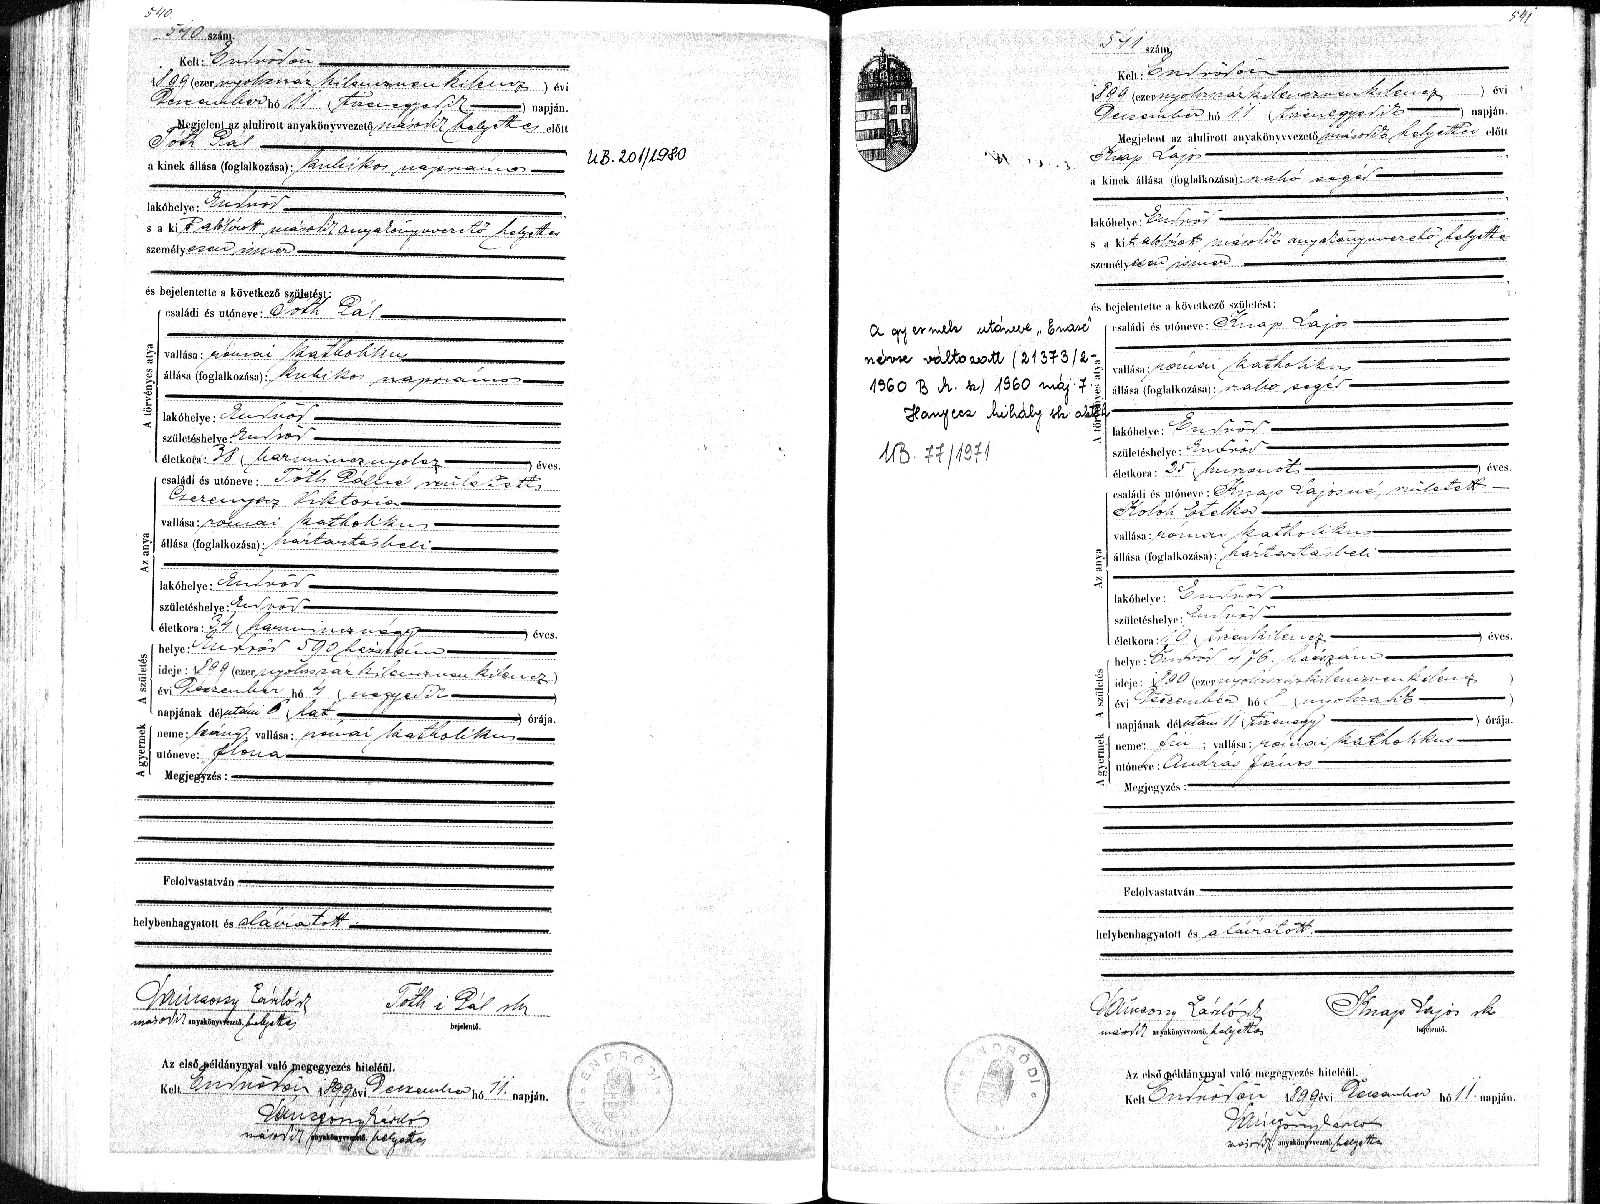 540.
540 szám.
Kelt: Endrődön
1899 (ezer nyolczszáz kilenczven kilencz ) évi
Deczember hó 11 (tizenegyedik ) napján.
Megjelent az alulirott anyakönyvvezető második helyettes előtt
Tóth Pál
a kinek állása (foglalkozása): kubikos napszámos
lakóhelye: Endrőd
s a kit alólirott második anyakönyvvezető helyettes
személyesen ismer
és bejelentette a következő születést:
A törvényes atya
családi és utóneve: Tóth Pál
vallása: római katholikus
állása (foglalkozása): kubikos napszámos
lakóhelye: Endrőd
születéshelye: Endrőd
életkora: 38 (harmincznyolcz ) éves.
Az anya
családi és utóneve: Tóth Pálné született
Cserenyecz Viktoria
vallása: római katholikus
állása (foglalkozása): háztartásbeli
lakóhelye: Endrőd
születéshelye: Endrőd
életkora: 34 (harmincznégy ) éves.
A születés
helye: Endrőd 590 házszám
ideje: 1899 (ezer nyolczszáz kilenczven kilencz )
évi Deczember hó 4 (negyedik )
napjának délutáni 6 (hat ) órája.
A gyermek
neme: leány vallása: római katholikus
utóneve: Ilona
Megjegyzés:
Felolvastatván
helybenhagyatott és aláiratott
László sk
második anyakönyvvezető helyettes
Tóth i Pál sk
bejelentő.
Az első példánynyal való megegyezés hiteléül.
Kelt Endrődön 1899 évi Deczember hó 11. napján.
második anyakönyvvezető helyettes
ENDRŐDI
UB. 201/1980
541
541 szám.
Kelt: Endrődön
1899 (ezer nyolczszáz kilenczven kilencz ) évi
Deczember hó 11 (tizenegyedik ) napján.
Megjelent az alulirott anyakönyvvezető második helyettes előtt
Knap Lajos
a kinek állása (foglalkozása): szabó segéd
lakóhelye: Endrőd
s a kit alólirott második anyakönyvvezető helyettes
személyesen ismer
és bejelentette a következő születést:
A törvényes atya
családi és utóneve: Knap Lajos
vallása: római katholikus
állása (foglalkozása): szabó segéd
lakóhelye: Endrőd
születéshelye: Endrőd
életkora: 25 (huszonöt ) éves.
Az anya
családi és utóneve: Knap Lajosné, született
Koloh Etelka
vallása: római katholikus
állása (foglalkozása): háztartásbeli
lakóhelye: Endrőd
születéshelye: Endrőd
életkora: 19 (tizenkilencz ) éves.
A születés
helye: Endrőd 476. házszám
ideje: 1899 (ezer nyolczszáz kilenczven kilencz )
évi Deczember hó 8 (nyolczadik )
napjának délutáni 11 (tizenegy ) órája.
A gyermek
neme: fiu; vallása: római katholikus
utóneve: András János
Megjegyzés:
Felolvastatván
helybenhagyatott és aláiratott.
László sk
második anyakönyvvezető helyettes
Knap Lajos sk
bejelentő.
Az első példánynyal való megegyezés hiteléül.
Kelt Endrődön 1899 évi Deczember hó 11. napján.
második anyakönyvvezető helyettes
ENDRŐDI
A gyermek utóneve
névre változott (21373/2-
1960 B h. sz) 1960 máj. 7
Hanyecz Mihály sk
UB. 77/1971